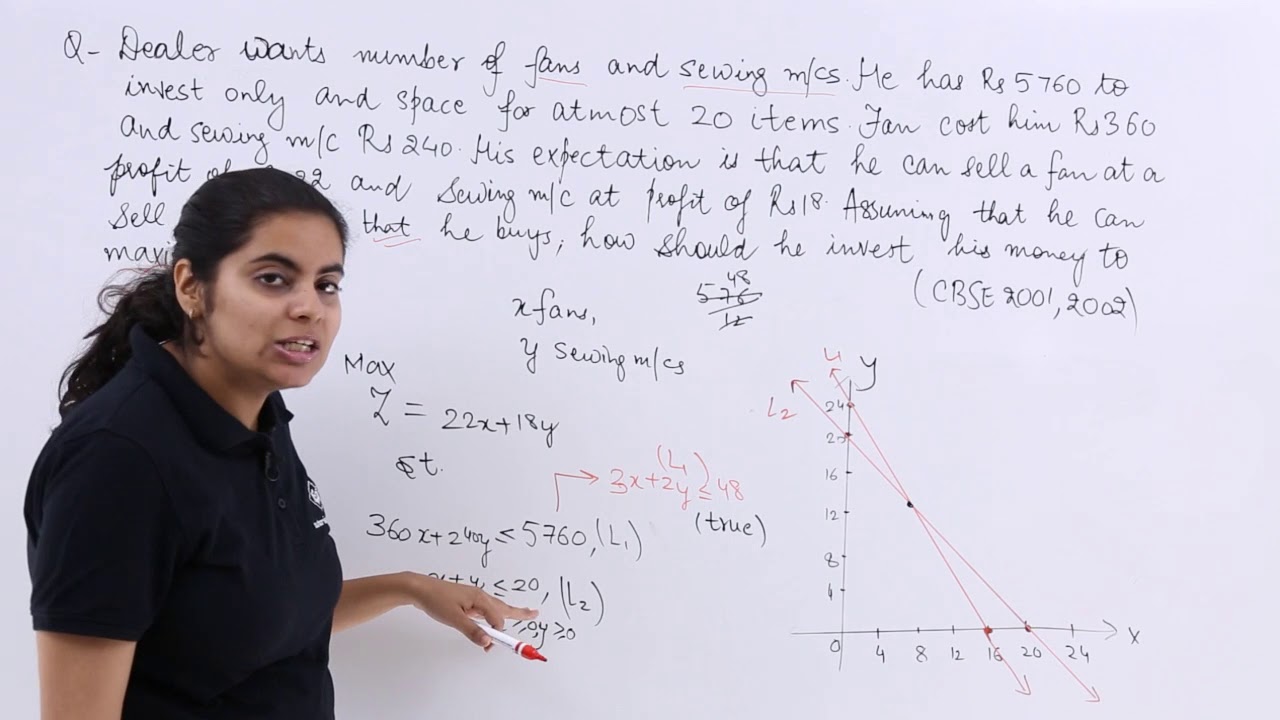 Q- Dealer wants number of fans and sewing m/cs. He has Rs 5760 to
invest only and space for atmost 20 items. Fan cost him Rs 360
and sewing m/c Rs 240. His expectation is that he can sell a fan at a
profit of 22 and Sewing m/c at profit of Rs 18. Assuming that he can
Sell that he buys, how should he invest his money to
(CBSE 2001, 2002)
x fans,
y Sewing m/cs
48
576
12
Max
Z = 22x+18y
st.
(L1)
3x+2y ≤ 48
(true)
360x+240y ≤ 5760, (L1)
x+y ≤ 20, (L2)
≥0, y ≥0
L1
y
L2
24
20
16
12
8
4
0 4 8 12 16 20 24 x